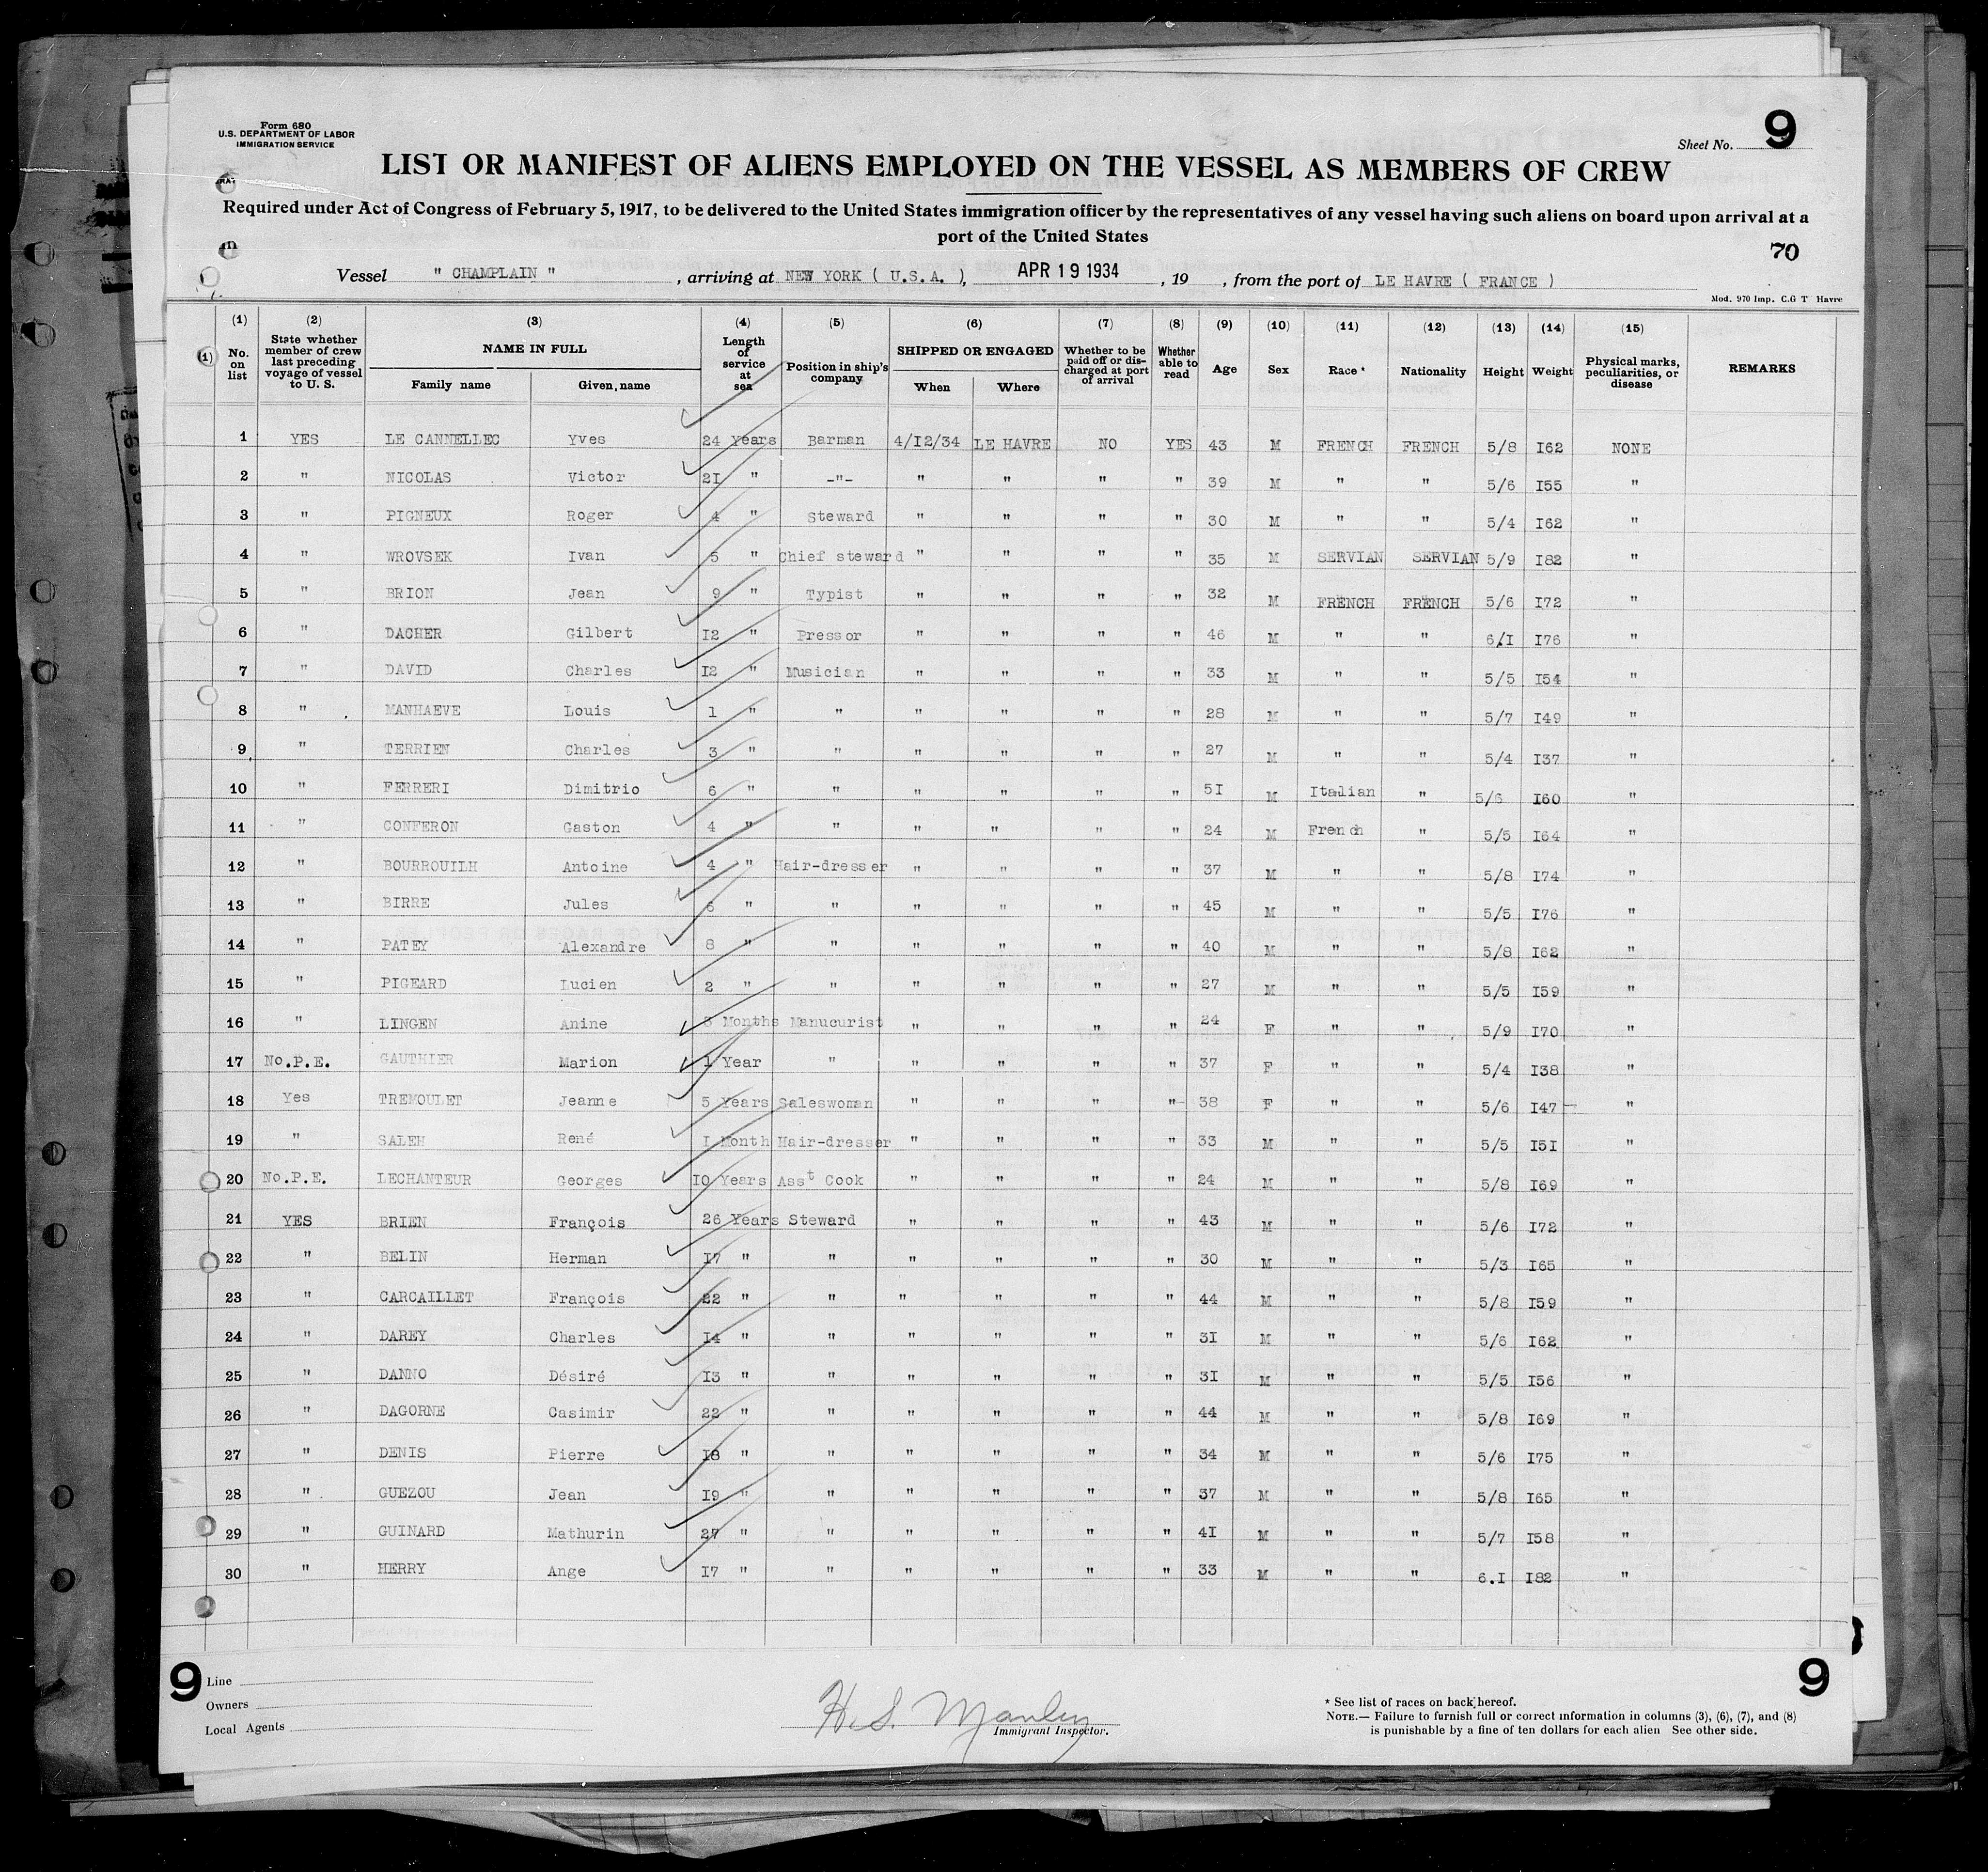 Form 680
U.S. DEPARTMENT OF LABOR
IMMIGRATION SERVICE
Sheet No. 9
LIST OR MANIFEST OF ALIENS EMPLOYED ON THE VESSEL AS MEMBERS OF CREW
Required under Act of Congress of February 5, 1917, to be delivered to the United States immigration officer by the representatives of any vessel having such aliens on board upon arrival at a
port of the United States
70
Vessel " CHAMPLAIN " , arriving at NEW YORK ( U.S.A. ), APR 19 1934 , 19 , from the port of LE HAVRE ( FRANCE )
Mod. 970 Imp. C.G T Havre
(1) (2) (3) (4) (5) (6) (7) (8) (9) (10) (11) (12) (13) (14) (15)
No. on list State whether member of crew last preceding voyage of vessel to U. S. NAME IN FULL Family name Given name Length of service at sea Position in ship's company SHIPPED OR ENGAGED When Where Whether to be paid off or discharged at port of arrival Whether able to read Age Sex Race * Nationality Height Weight Physical marks, peculiarities, or disease REMARKS
1 YES LE CANNELLEC Yves 24 Years Barman 4/I2/34 LE HAVRE NO YES 43 M FRENCH FRENCH 5/8 I62 NONE
2 " NICOLAS Victor 2I " -"- " " " " 39 M " " 5/6 I55 "
3 " PIGNEUX Roger 4 " Steward " " " " 30 M " " 5/4 I62 "
4 " WROVSEK Ivan 5 " Chief steward " " " " 35 M SERVIAN SERVIAN 5/9 I82 "
5 " BRION Jean 9 " Typist " " " " 32 M FRENCH FRENCH 5/6 I72 "
6 " DACHER Gilbert I2 " Pressor " " " " 46 M " " 6/I I76 "
7 " DAVID Charles I2 " Musician " " " " 33 M " " 5/5 I54 "
8 " MANHAEVE Louis 1 " " " " " " 28 M " " 5/7 I49 "
9 " TERRIEN Charles 3 " " " " " " 27 M " " 5/4 I37 "
10 " FERRERI Dimitrio 6 " " " " " " 5I M Italian " 5/6 I60 "
11 " CONFERON Gaston 4 " " " " " " 24 M French " 5/5 I64 "
12 " BOURROUILH Antoine 4 " Hair-dresser " " " " 37 M " " 5/8 I74 "
13 " BIRRE Jules 6 " " " " " " 45 M " " 5/5 I76 "
14 " PATEY Alexandre 8 " " " " " " 40 M " " 5/8 I62 "
15 " PIGEARD Lucien 2 " " " " " " 27 M " " 5/5 I59 "
16 " LINGEN Anine 3 Months Manucurist " " " " 24 F " " 5/9 I70 "
17 No.P.E. GAUTHIER Marion 1 Year " " " " " 37 F " " 5/4 I38 "
18 Yes TREMOULET Jeanne 5 Years Saleswoman " " " " 38 F " " 5/6 I47 "
19 " SALEH René I Month Hair-dresser " " " " 33 M " " 5/5 I5I "
20 No.P.E. LECHANTEUR Georges IO Years Asst Cook " " " " 24 M " " 5/8 I69 "
21 YES BRIEN François 26 Years Steward " " " " 43 M " " 5/6 I72 "
22 " BELIN Herman I7 " " " " " " 30 M " " 5/3 I65 "
23 " CARCAILLET François 22 " " " " " " 44 M " " 5/8 I59 "
24 " DAREY Charles I4 " " " " " " 3I M " " 5/6 I62 "
25 " DANNO Désiré I3 " " " " " " 3I M " " 5/5 I56 "
26 " DAGORNE Casimir 22 " " " " " " 44 M " " 5/8 I69 "
27 " DENIS Pierre I8 " " " " " " 34 M " " 5/6 I75 "
28 " GUEZOU Jean I9 " " " " " " 37 M " " 5/8 I65 "
29 " GUINARD Mathurin 27 " " " " " " 4I M " " 5/7 I58 "
30 " HERRY Ange I7 " " " " " " 33 M " " 6.I I82 "
9 Line 9
Owners
Local Agents
H. S. Manley
Immigrant Inspector.
* See list of races on back hereof.
NOTE.— Failure to furnish full or correct information in columns (3), (6), (7), and (8)
is punishable by a fine of ten dollars for each alien See other side.